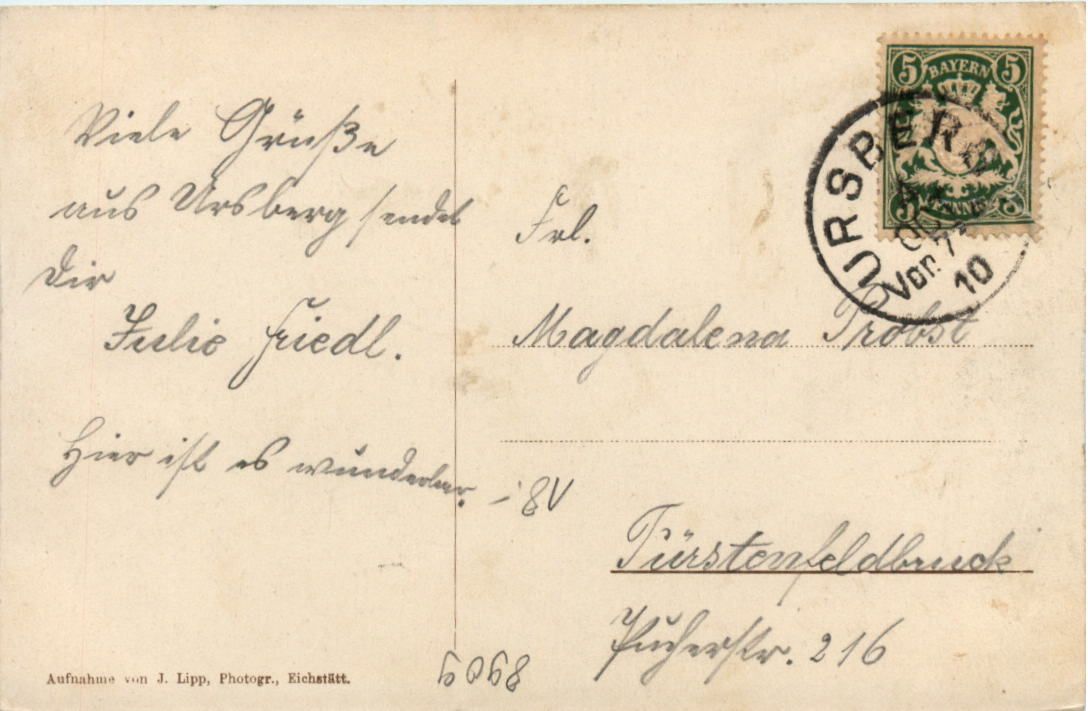 Viele Grüße
aus Ursberg sendet
Dir
Julie Friedl.
Hier ist es wunderbar.
Aufnahme von J. Lipp, Photogr., Eichstätt.
5 BAYERN 5
PFENNIG
URSBERG
Vor. 7-
10
Frl.
Magdalena Probst
Fürstenfeldbruck
Pucherstr. 216